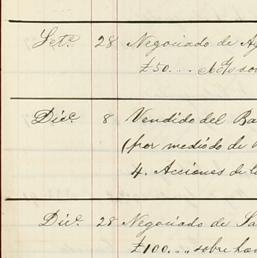 Set.e 28 Negociado de
£50...
Dic.e 8 Vendido del Ba
(por medio de
4. Acciones de l
Dic.e 28 Negociado de
£100... sobre